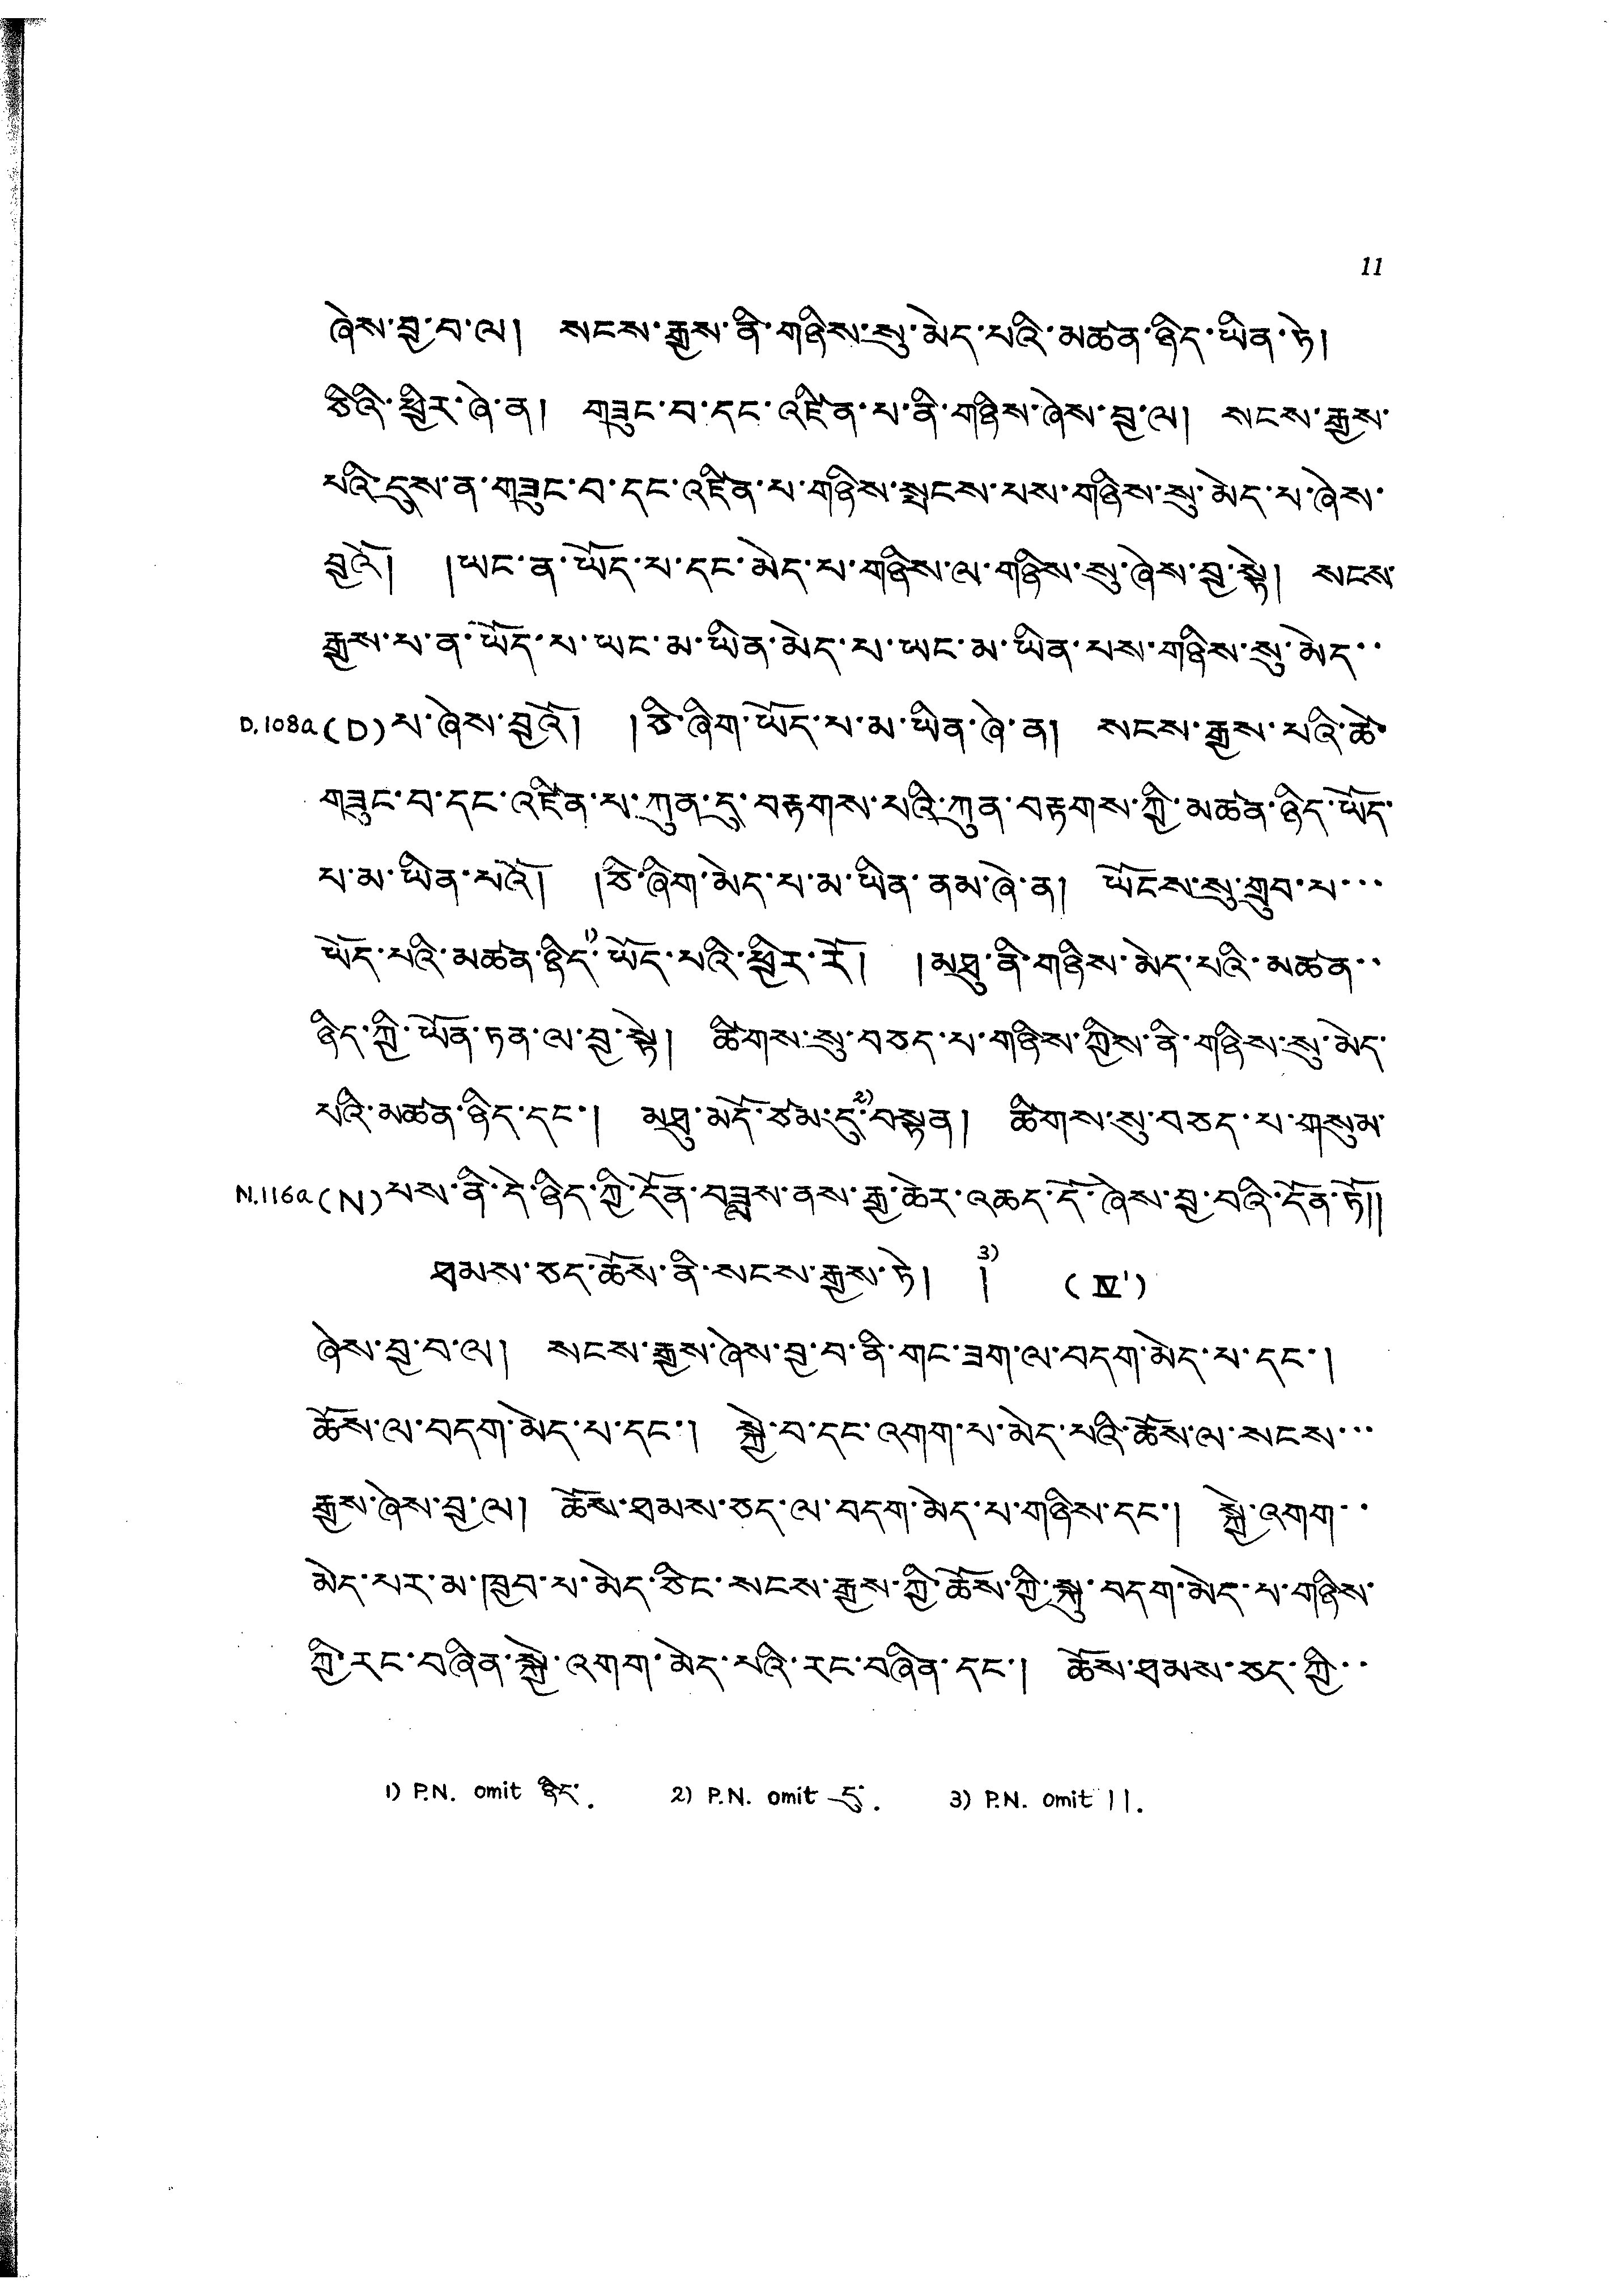 11
ཞེས་བྱ་བ་ལ། སངས་རྒྱས་ནི་གཉིས་སུ་མེད་པའི་མཚན་ཉིད་ཡིན་ཏེ།
ཅིའི་ཕྱིར་ཞེ་ན། གཟུང་བ་དང་འཛིན་པ་ནི་གཉིས་ཞེས་བྱ་ལ། སངས་རྒྱས་
པའི་དུས་ན་གཟུང་བ་དང་འཛིན་པ་གཉིས་སྤངས་པས་གཉིས་སུ་མེད་པ་ཞེས་
བྱའོ། །ཡང་ན་ཡོད་པ་དང་མེད་པ་གཉིས་ལ་གཉིས་སུ་ཞེས་བྱ་སྟེ། སངས་
རྒྱས་པ་ན་ཡོད་པ་ཡང་མ་ཡིན་མེད་པ་ཡང་མ་ཡིན་པས་གཉིས་སུ་མེད་་
D.108a (D) པ་ཞེས་བྱའོ། །ཅི་ཞིག་ཡོད་པ་མ་ཡིན་ཞེ་ན། སངས་རྒྱས་པའི་ཚེ་
གཟུང་བ་དང་འཛིན་པ་ཀུན་དུ་བརྟགས་པའི་ཀུན་བརྟགས་ཀྱི་མཚན་ཉིད་ཡོད་
པ་མ་ཡིན་པའོ། །ཅི་ཞིག་མེད་པ་མ་ཡིན་ནམ་ཞེ་ན། ཡོངས་སུ་གྲུབ་པ་་་
ཡོད་པའི་མཚན་ཉིད་1) ཡོད་པའི་ཕྱིར་རོ། །མཐུ་ནི་གཉིས་མེད་པའི་མཚན་་
ཉིད་ཀྱི་ཡོན་ཏན་ལ་བྱ་སྟེ། ཚིགས་སུ་བཅད་པ་གཉིས་ཀྱིས་ནི་གཉིས་སུ་མེད་
པའི་མཚན་ཉིད་དང་། མཐུ་མདོ་ཙམ་དུ་2)བསྟན། ཚིགས་སུ་བཅད་པ་གསུམ་
N.116a (N) པས་ནི་དེ་ཉིད་ཀྱི་དོན་བཟླས་ནས་རྒྱ་ཆེར་འཆད་དོ་ཞེས་བྱ་བའི་དོན་ཏོ།།
ཐམས་ཅད་ཆོས་ནི་སངས་རྒྱས་ཏེ། །3) (Ⅳ')
ཞེས་བྱ་བ་ལ། སངས་རྒྱས་ཞེས་བྱ་བ་ནི་གང་ཟག་ལ་བདག་མེད་པ་དང་།
ཆོས་ལ་བདག་མེད་པ་དང་། སྐྱེ་བ་དང་འགག་པ་མེད་པའི་ཆོས་ལ་སངས་་་
རྒྱས་ཞེས་བྱ་ལ། ཆོས་ཐམས་ཅད་ལ་བདག་མེད་པ་གཉིས་དང་། སྐྱེ་འགག་་
མེད་པར་མ་ཁྱབ་པ་མེད་ཅིང་སངས་རྒྱས་ཀྱི་ཆོས་ཀྱི་སྐུ་བདག་མེད་པ་གཉིས་
ཀྱི་རང་བཞིན་སྐྱེ་འགག་མེད་པའི་རང་བཞིན་དང་། ཆོས་ཐམས་ཅད་ཀྱི་་
1) P.N. omit ཉིད་. 2) P.N. omit དུ་. 3) P.N. omit །།.